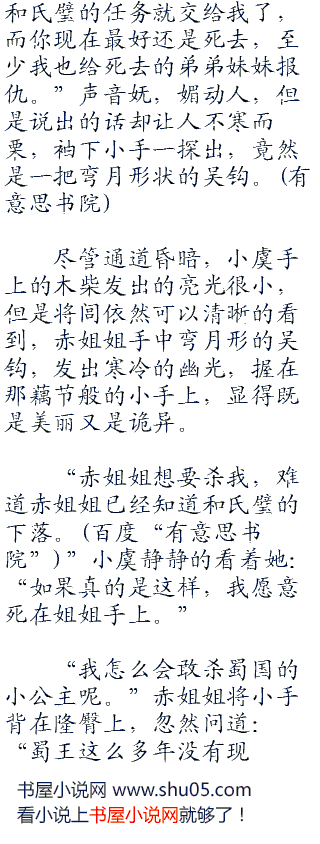 和氏璧的任务就交给我了，
而你现在最好还是死去，至
少我也给死去的弟弟妹妹报
仇。”声音妩，媚动人，但
是说出的话却让人不寒而
栗，袖下小手一探出，竟然
是一把弯月形状的吴钩。(有
意思书院)
尽管通道昏暗，小虞手
上的木柴发出的亮光很小，
但是将闾依然可以清晰的看
到，赤姐姐手中弯月形的吴
钩，发出寒冷的幽光，握在
那藕节般的小手上，显得既
是美丽又是诡异。
“赤姐姐想要杀我，难
道赤姐姐已经知道和氏璧的
下落。(百度“有意思书
院”)”小虞静静的看着她:
“如果真的是这样，我愿意
死在姐姐手上。”
“我怎么会敢杀蜀国的
小公主呢。”赤姐姐将小手
背在隆臀上，忽然问道:
“蜀王这么多年没有现
书屋小说网 www.shu05.com
看小说上书屋小说网就够了！